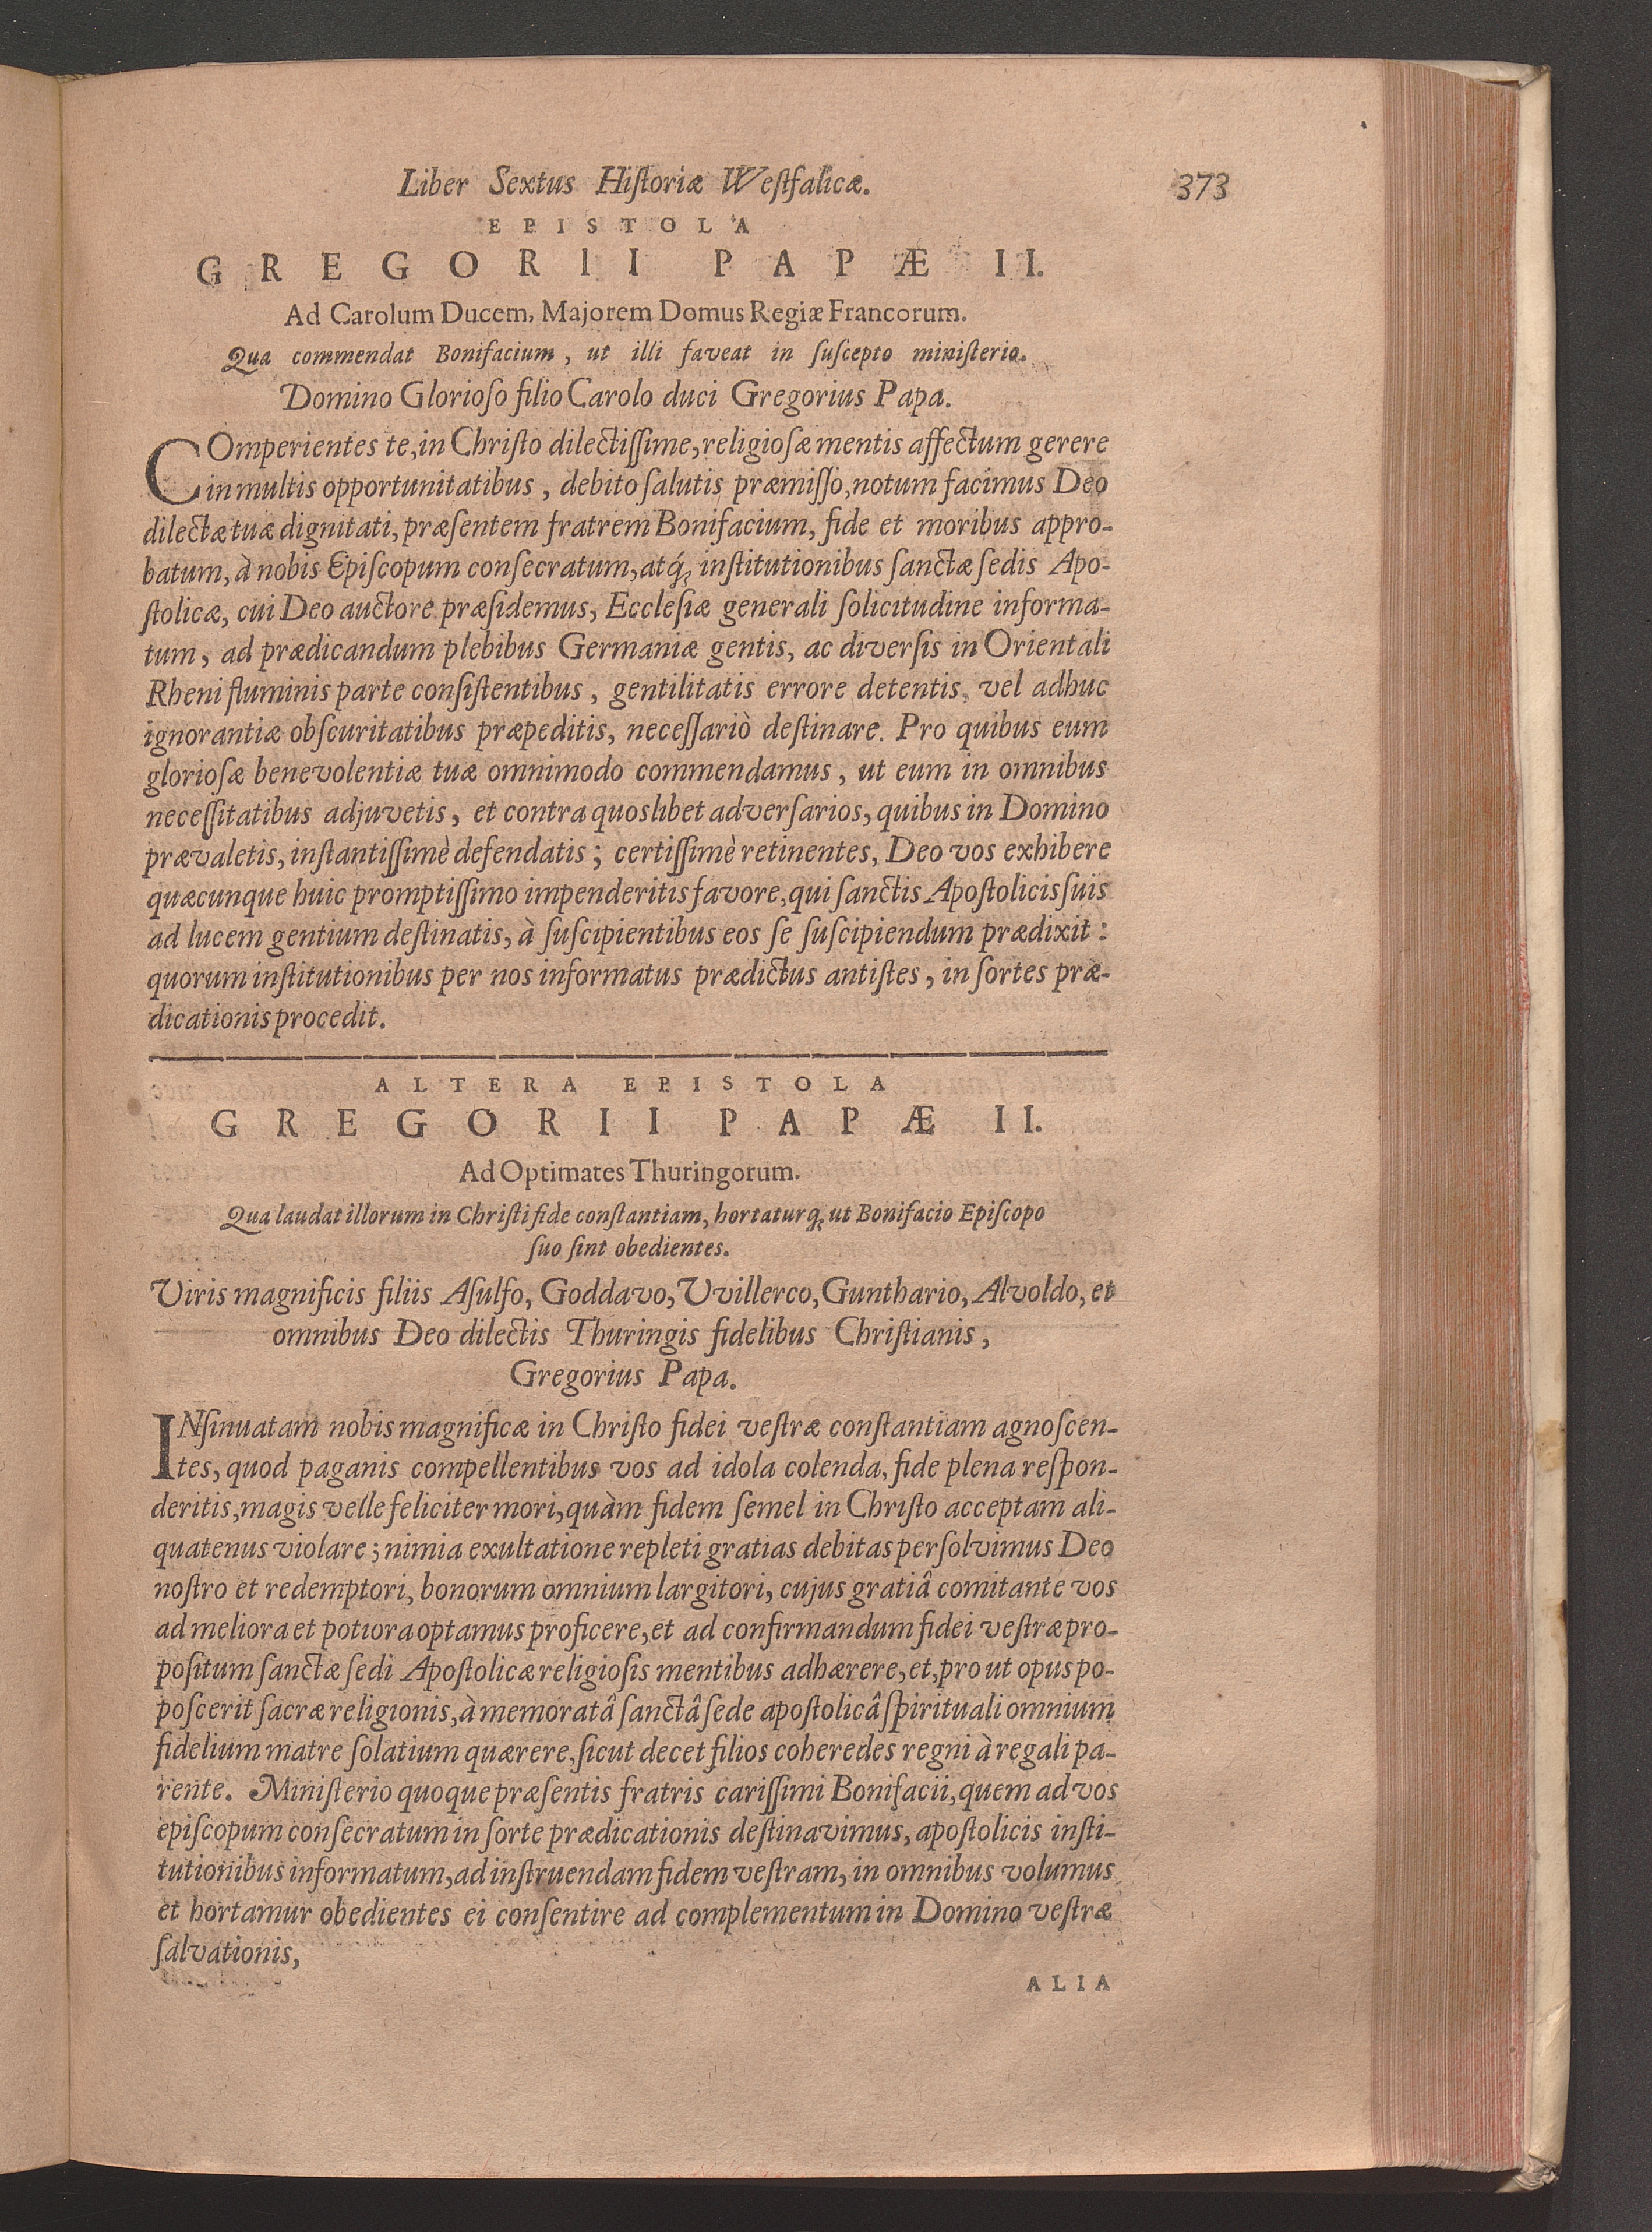 Liber Sextus Historiæ Westfalicæ. 373
EPISTOLA
GREGORII PAPÆ II.
Ad Carolum Ducem, Majorem Domus Regiæ Francorum.
Qua commendat Bonifacium, ut illi faveat in suscepto ministerio.
Domino Glorioso filio Carolo duci Gregorius Papa.
COmperientes te, in Christo dilectissime, religiosæ mentis affectum gerere
in multis opportunitatibus, debito salutis præmisso, notum facimus Deo
dilectæ tuæ dignitati, præsentem fratrem Bonifacium, fide et moribus appro-
batum, à nobis Episcopum consecratum, atq́; institutionibus sanctæ sedis Apo-
stolicæ, cui Deo auctore præsidemus, Ecclesiæ generali solicitudine informa-
tum, ad prædicandum plebibus Germaniæ gentis, ac diversis in Orientali
Rheni fluminis parte consistentibus, gentilitatis errore detentis, vel adhuc
ignorantiæ obscuritatibus præpeditis, necessariò destinare. Pro quibus eum
gloriosæ benevolentiæ tuæ omnimodo commendamus, ut eum in omnibus
necessitatibus adjuvetis, et contra quoslibet adversarios, quibus in Domino
prævaletis, instantissimè defendatis; certissimè retinentes, Deo vos exhibere
quæcunque huic promptissimo impenderitis favore, qui sanctis Apostolicis suis
ad lucem gentium destinatis, à suscipientibus eos se suscipiendum prædixit:
quorum institutionibus per nos informatus prædictus antistes, in sortes præ-
dicationis procedit.
ALTERA EPISTOLA
GREGORII PAPÆ II.
Ad Optimates Thuringorum.
Qua laudat illorum in Christi fide constantiam, hortaturq; ut Bonifacio Episcopo
suo sint obedientes.
Viris magnificis filiis Asulfo, Goddavo, Uvillerco, Gunthario, Alvoldo, et
omnibus Deo dilectis Thuringis fidelibus Christianis,
Gregorius Papa.
INsinuatam nobis magnificæ in Christo fidei vestræ constantiam agnoscen-
tes, quod paganis compellentibus vos ad idola colenda, fide plena respon-
deritis, magis velle feliciter mori, quàm fidem semel in Christo acceptam ali-
quatenus violare; nimia exultatione repleti gratias debitas persolvimus Deo
nostro et redemptori, bonorum omnium largitori, cujus gratiâ comitante vos
ad meliora et potiora optamus proficere, et ad confirmandum fidei vestræ pro-
positum sanctæ sedi Apostolicæ religiosis mentibus adhærere, et, pro ut opus po-
poscerit sacræ religionis, à memoratâ sanctâ sede apostolicâ spirituali omnium
fidelium matre solatium quærere, sicut decet filios coheredes regni à regali pa-
rente. Ministerio quoque præsentis fratris carissimi Bonifacii, quem ad vos
episcopum consecratum in sorte prædicationis destinavimus, apostolicis insti-
tutionibus informatum, ad instruendam fidem vestram, in omnibus volumus
et hortamur obedientes ei consentire ad complementum in Domino vestræ
salvationis,
ALIA